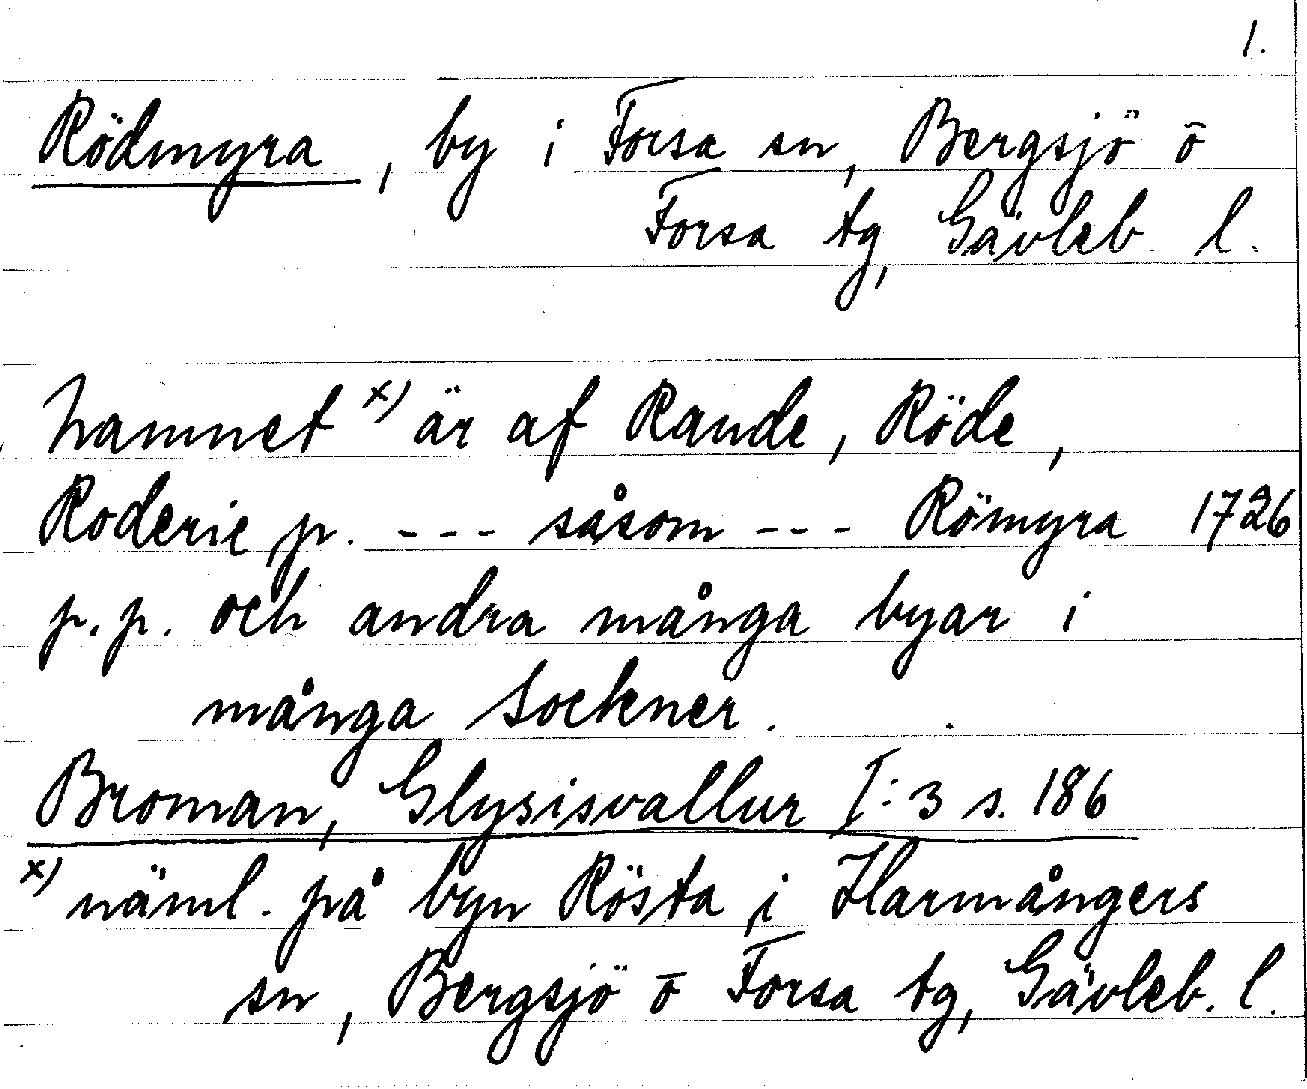 1.
Rödmyra, by i Forsa sn, Bergsjö ō
Forsa tg, Gävleb. l.
Namnet x) är af Raude, Röde,
Roderic p. --- såsom --- Römyra 1726
p.p. och andra många byar i
många Sockner.
Broman, Glysisvallur I:3 s. 186
x) näml. på byn Rösta i Harmångers
sn, Bergsjö ō Forsa tg, Gävleb. l.